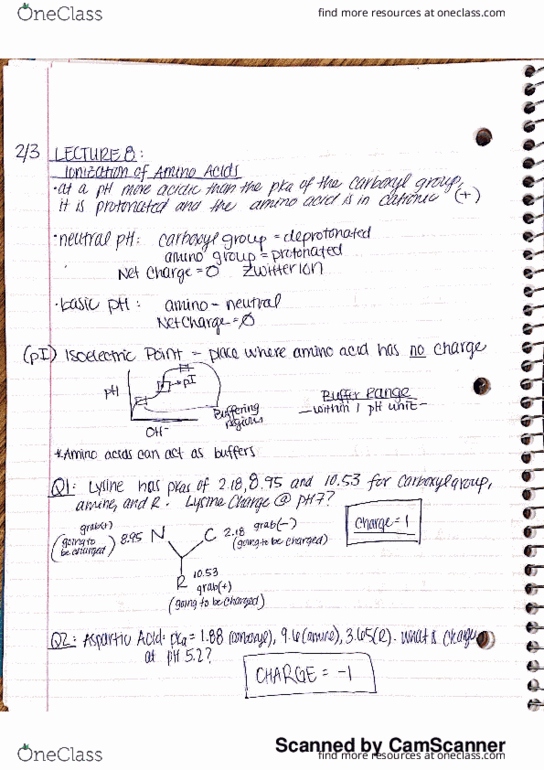 OneClass
find more resources at oneclass.com
2/3 LECTURE 8:
Ionization of Amino Acids
• at a pH more acidic than the pka of the carboxyl group,
it is protonated and the amino acid is in cationic (+)
• neutral pH: carboxyl group = deprotonated
amino group = protonated
Net Charge = 0 Zwitterion
• basic pH: amino - neutral
Net Charge = 0
(pI) Isoelectric Point - place where amino acid has no charge
pH
pI
OH⁻
Buffering regions
Buffer Range
- within 1 pH unit -
*Amino acids can act as buffers
Q1: Lysine has pkas of 2.18, 8.95 and 10.53 for carboxyl group,
amine, and R. Lysine Charge @ pH 7?
grab(+)
(going to be charged) 8.95 N
C 2.18 grab(-)
(going to be charged)
Charge = 1
R 10.53
grab(+)
(going to be charged)
Q2: Aspartic Acid: pka = 1.88 (carboxyl), 9.6 (amine), 3.65 (R). What is charge
at pH 5.2?
CHARGE = -1
Scanned by CamScanner
OneClass
find more resources at oneclass.com